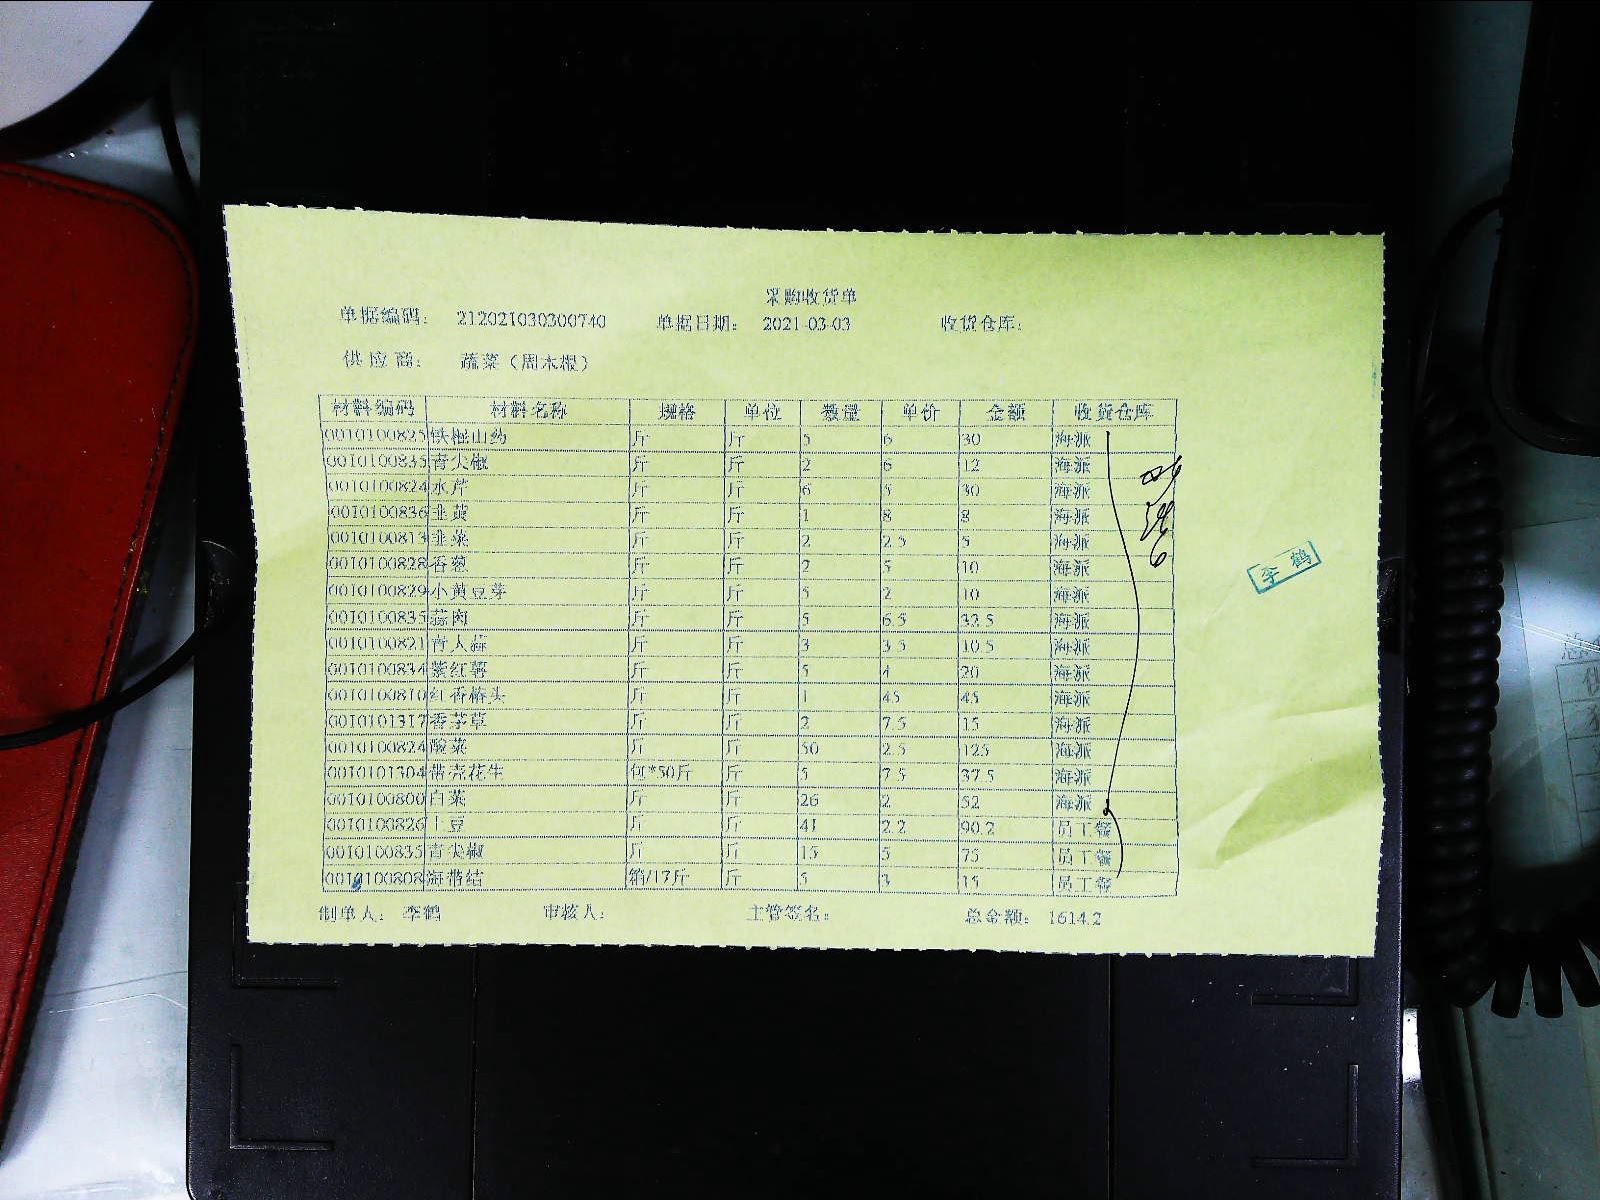 采购收货单
单据编码： 212021030300740 单据日期： 2021-03-03 收货仓库：
供应商： 蔬菜（周木根）
材料编码 材料名称 规格 单位 数量 单价 金额 收货仓库
0010100825 铁棍山药 斤 斤 5 6 30 海派
0010100835 青尖椒 斤 斤 2 6 12 海派
0010100824 水芹 斤 斤 6 5 30 海派
0010100836 韭黄 斤 斤 1 8 8 海派
0010100813 韭菜 斤 斤 2 2.5 5 海派
0010100828 香葱 斤 斤 2 5 10 海派
0010100829 小黄豆芽 斤 斤 5 2 10 海派
0010100835 蒜肉 斤 斤 5 6.5 32.5 海派
0010100821 青大蒜 斤 斤 3 3.5 10.5 海派
0010100834 紫红薯 斤 斤 5 4 20 海派
0010100810 红香椿头 斤 斤 1 45 45 海派
0010101317 香茅草 斤 斤 2 7.5 15 海派
0010100824 酸菜 斤 斤 50 2.5 125 海派
0010101304 带壳花生 包*50斤 斤 5 7.5 37.5 海派
0010100800 白菜 斤 斤 26 2 52 海派
0010100826 土豆 斤 斤 41 2.2 90.2 员工餐
0010100835 青尖椒 斤 斤 15 5 75 员工餐
0010100808 海带结 箱/17斤 斤 5 3 15 员工餐
制单人： 李鹤 审核人： 主管签名： 总金额： 1614.2
李鹤